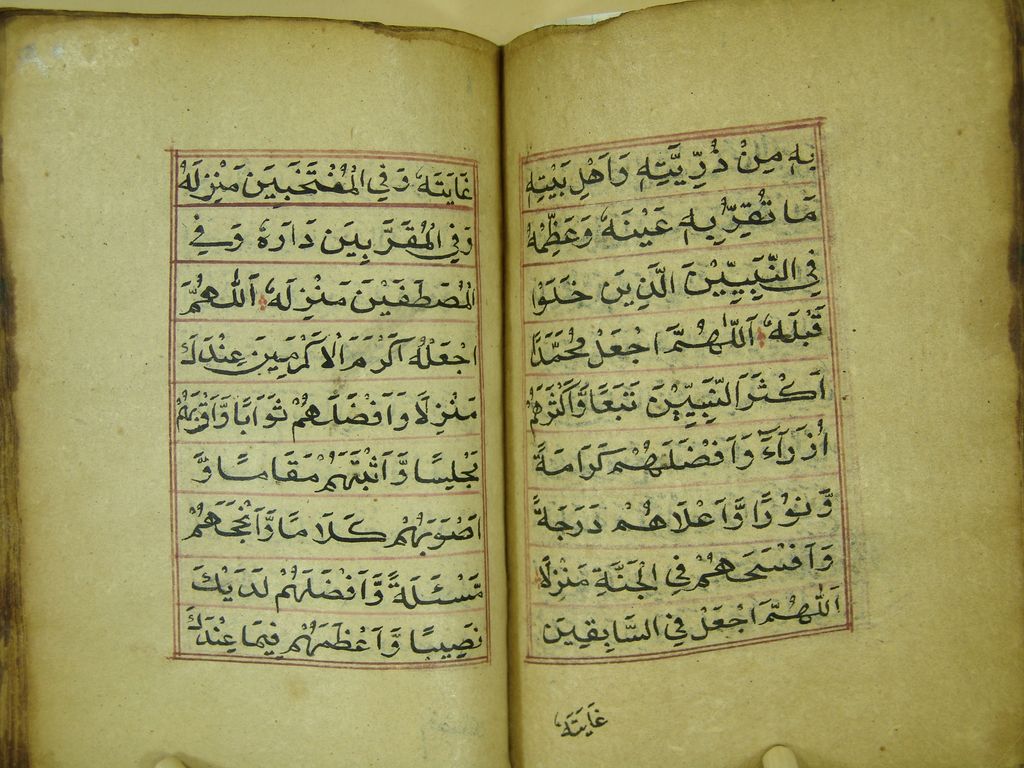 بِهٖ مِنْ ذُرِّيَّتِهٖ وَاَهْلِ بَيْتِهٖ
مَا تُقِرُّ بِهٖ عَيْنَهٗ وَعَظِّمْهُ
فِي النَّبِيِّيْنَ الَّذِيْنَ خَلَوْا
قَبْلَهٗ اَللّٰهُمَّ اجْعَلْ مُحَمَّدًا
اَكْثَرَ النَّبِيِّيْنَ تَبَعًا وَّاَكْثَرَهُمْ
اُزَرَآءَ وَاَفْضَلَهُمْ كَرَامَةً
وَّنُوْرًا وَّاَعْلَاهُمْ دَرَجَةً
وَاَفْسَحَهُمْ فِي الْجَنَّةِ مَنْزِلًا
اَللّٰهُمَّ اجْعَلْ فِي السَّابِقِيْنَ
غَايَتَهٗ
غَايَتَهٗ وَفِي الْمُنْتَخَبِيْنَ مَنْزِلَهٗ
وَفِي الْمُقَرَّبِيْنَ دَارَهٗ وَفِي
الْمُصْطَفَيْنَ مَنْزِلَهٗ اَللّٰهُمَّ
اجْعَلْهُ اَكْرَمَ الْاَكْرَمِيْنَ عِنْدَكَ
مَنْزِلًا وَاَفْضَلَهُمْ ثَوَابًا وَّاَقْرَبَهُمْ
مَجْلِسًا وَّاَثْبَتَهُمْ مَقَامًا وَّ
اَصْوَبَهُمْ كَلَامًا وَّاَنْجَحَهُمْ
مَّسْئَلَةً وَّاَفْضَلَهُمْ لَدَيْكَ
نَصِيْبًا وَّاَعْظَمَهُمْ فِيْمَا عِنْدَكَ